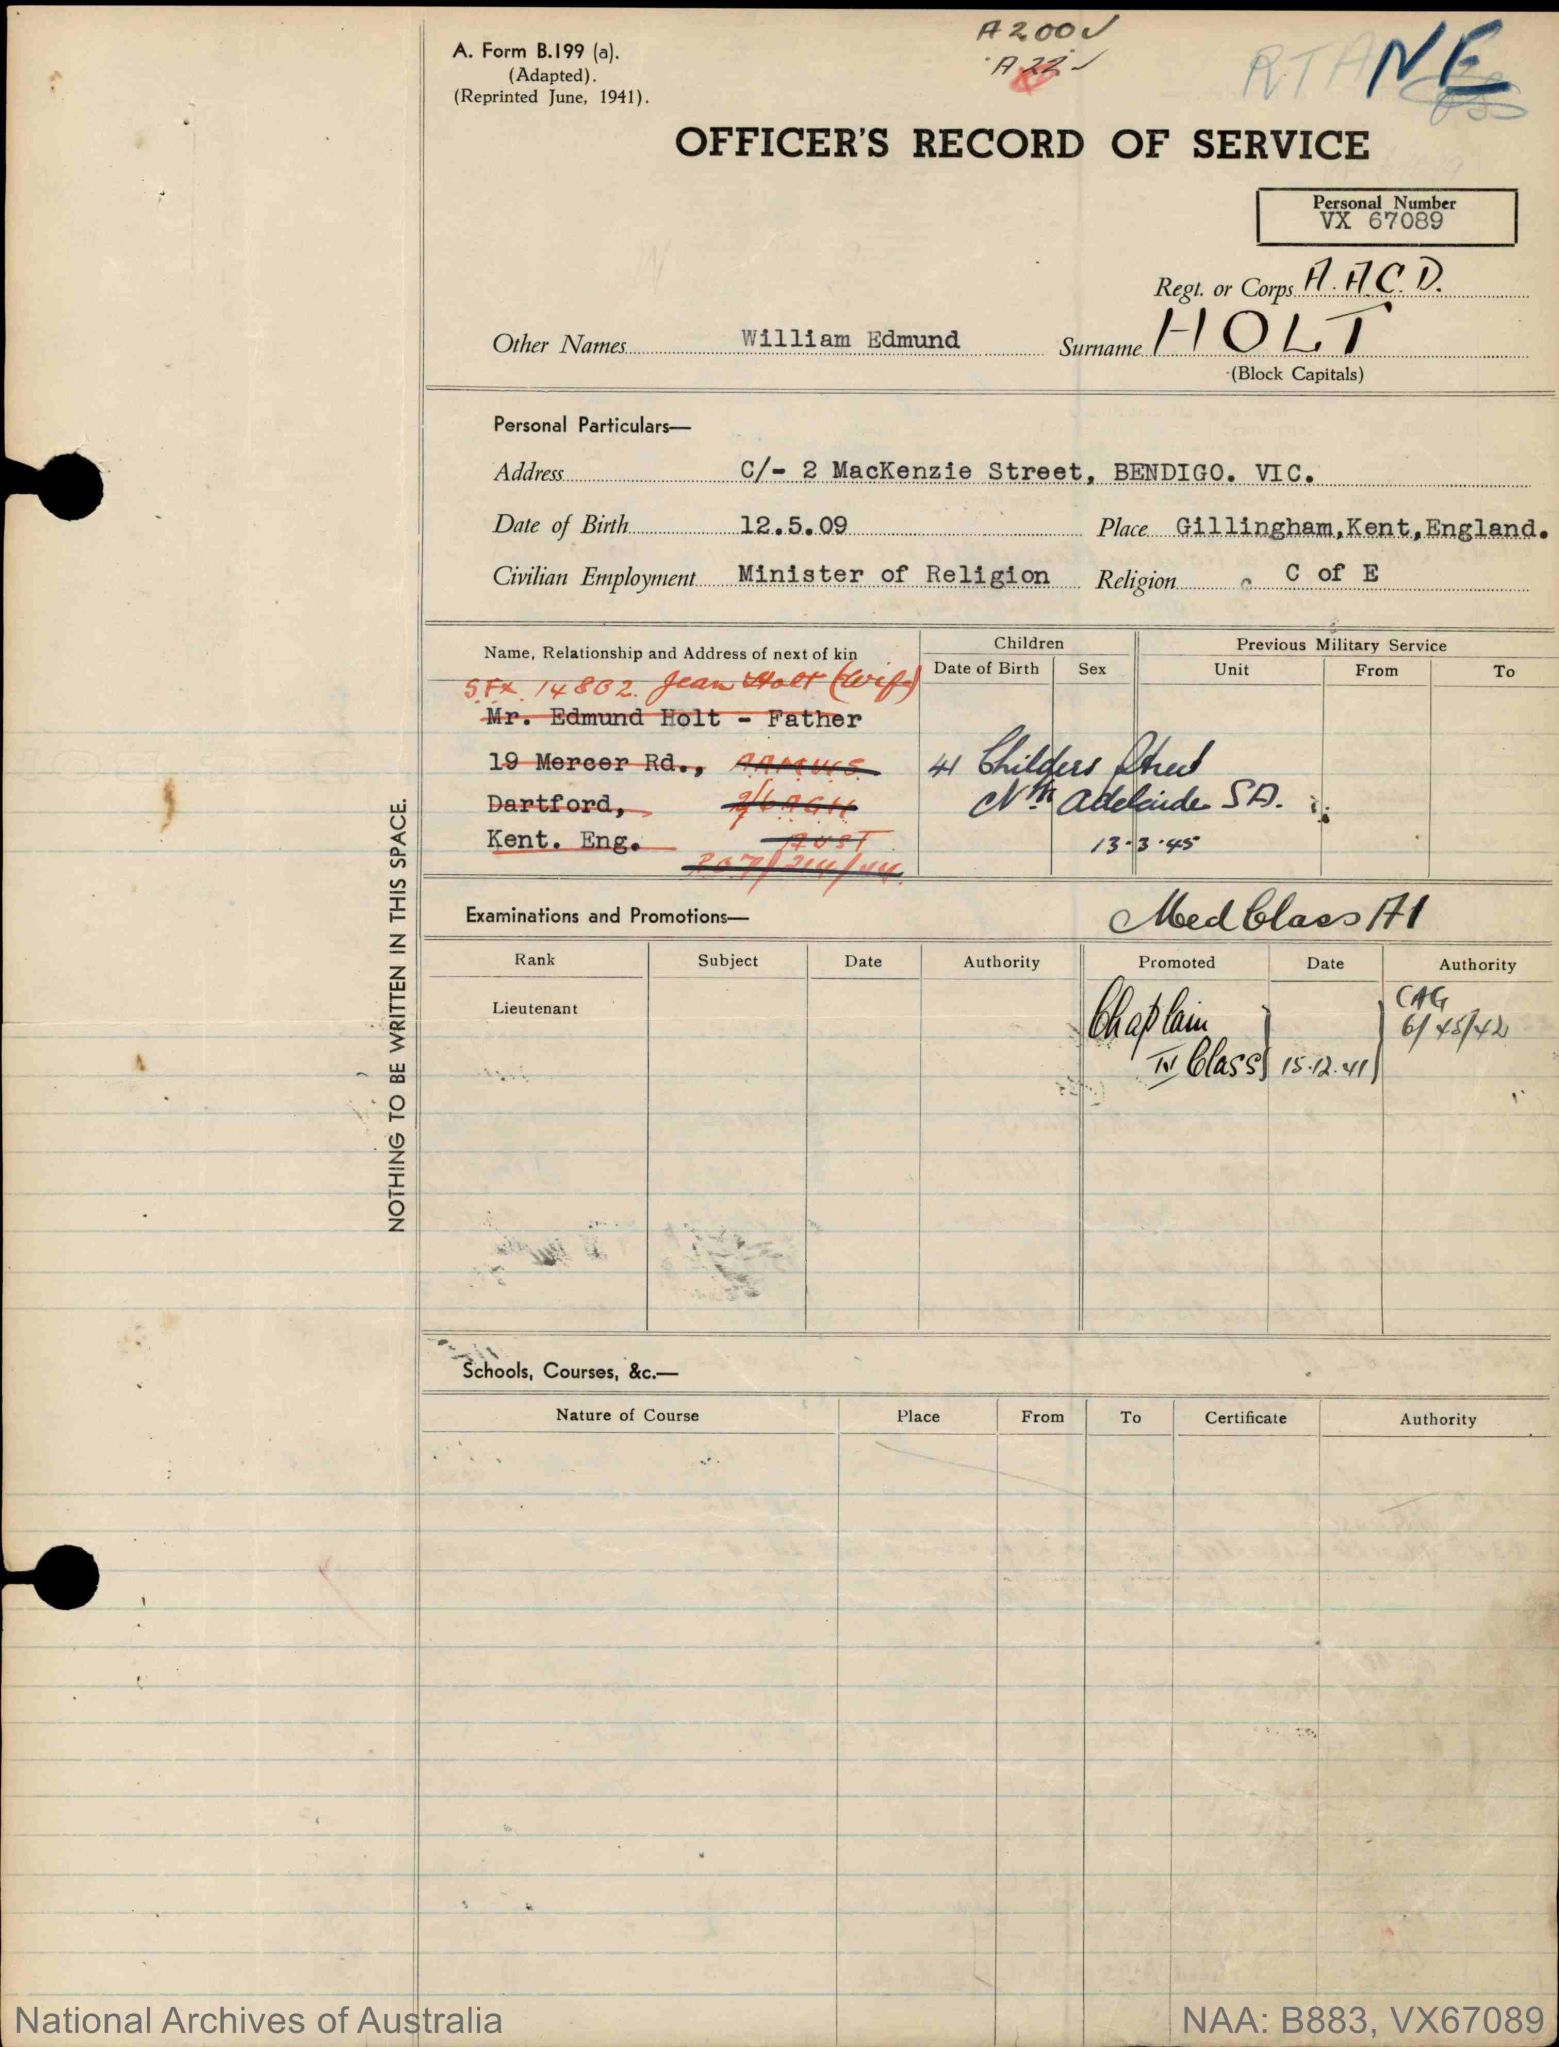 A 200
A 22
RTA NE
A. Form B.199 (a).
(Adapted).
(Reprinted June, 1941).
OFFICER'S RECORD OF SERVICE
Personal Number
VX 67089
Regt. or Corps A.A.C.D.
Other Names William Edmund Surname HOLT
(Block Capitals)
Personal Particulars—
Address C/- 2 MacKenzie Street, BENDIGO. VIC.
Date of Birth 12.5.09 Place Gillingham,Kent,England.
Civilian Employment Minister of Religion Religion C of E
Name, Relationship and Address of next of kin Children Previous Military Service
Date of Birth Sex Unit From To
SFX 14802. Jean Holt (Wife)
Mr. Edmund Holt - Father
19 Mercer Rd., AAMWS 41 Childers Street
Dartford, 2/6 AGH Nth Adelaide SA.
Kent. Eng. AUST 13.3.45
Examinations and Promotions— Med Class A1
Rank Subject Date Authority Promoted Date Authority
Lieutenant Chaplain CAG
6/45/42
IV Class 15.12.41
NOTHING TO BE WRITTEN IN THIS SPACE.
Schools, Courses, &c.—
Nature of Course Place From To Certificate Authority
National Archives of Australia NAA: B883, VX67089